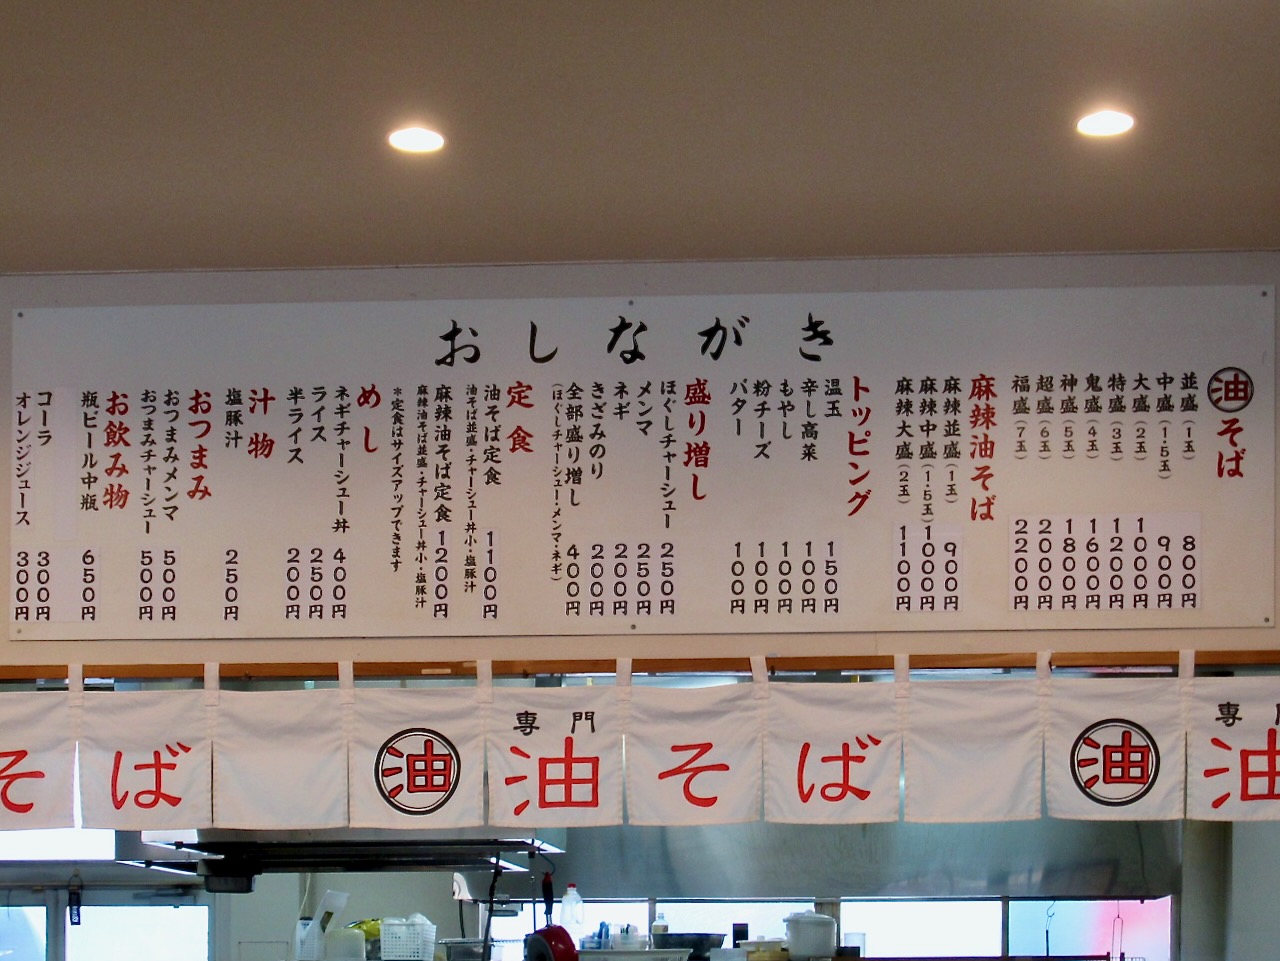 おしながき
油そば
並盛(1玉) 800円
中盛(1.5玉) 900円
大盛(2玉) 1000円
特盛(3玉) 1200円
鬼盛(4玉) 1600円
神盛(5玉) 1800円
超盛(6玉) 2000円
福盛(7玉) 2200円
麻辣油そば
麻辣並盛(1玉) 900円
麻辣中盛(1.5玉) 1000円
麻辣大盛(2玉) 1100円
トッピング
温玉 150円
辛し高菜 100円
もやし 100円
粉チーズ 100円
バター 100円
盛り増し
ほぐしチャーシュー 250円
メンマ 250円
ネギ 200円
きざみのり 200円
全部盛り増し 400円
(ほぐしチャーシュー・メンマ・ネギ)
定食
油そば定食 1100円
油そば並盛・チャーシュー丼小・塩豚汁
麻辣油そば定食 1200円
麻辣油そば並盛・チャーシュー丼小・塩豚汁
*定食はサイズアップできます
めし
ネギチャーシュー丼 400円
ライス 250円
半ライス 200円
汁物
塩豚汁 250円
おつまみ
おつまみメンマ 500円
おつまみチャーシュー 500円
お飲み物
瓶ビール中瓶 650円
コーラ 300円
オレンジジュース 300円
そば
油
専門
油そば
油
専門
油